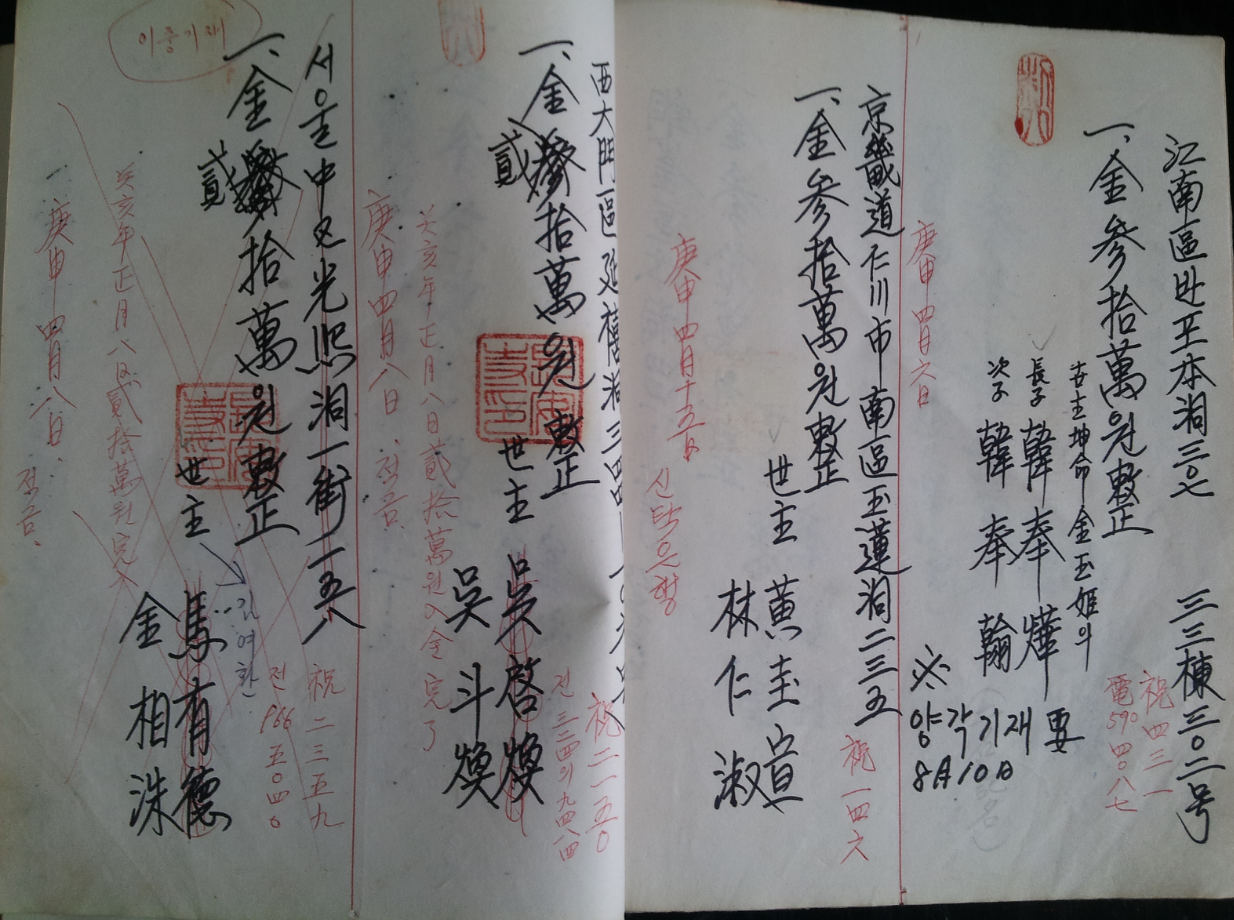 江南區반포本洞三○七 三三棟三○二号
一、金參拾萬원整
古主坤命 金玉姬의
長子 韓奉燁
次子 韓奉翰
祝四三一
電590 四○八七
※양각기재 要
8月10日
庚申四月六日
京畿道仁川市南區玉蓮洞二三五
一、金參拾萬원整
世主 黃圭宣
林仁淑
祝一四六
庚申四月十五日
신탁은행
西大門區延禧洞三四四
一、金參拾萬원整
貳
世主 吳啓煥
吳斗煥
祝二一五○
전 三三四의九四八四
癸亥年正月八日貳拾萬원入金完了
庚申四月八日
서울中区光熙洞一街二五八
一、金參拾萬원整
貳
世主 馬有德
김여환
金相洙
祝二三五九
전 966 五○四○
이중기재
癸亥年正月八日貳拾萬원完
庚申四月八日